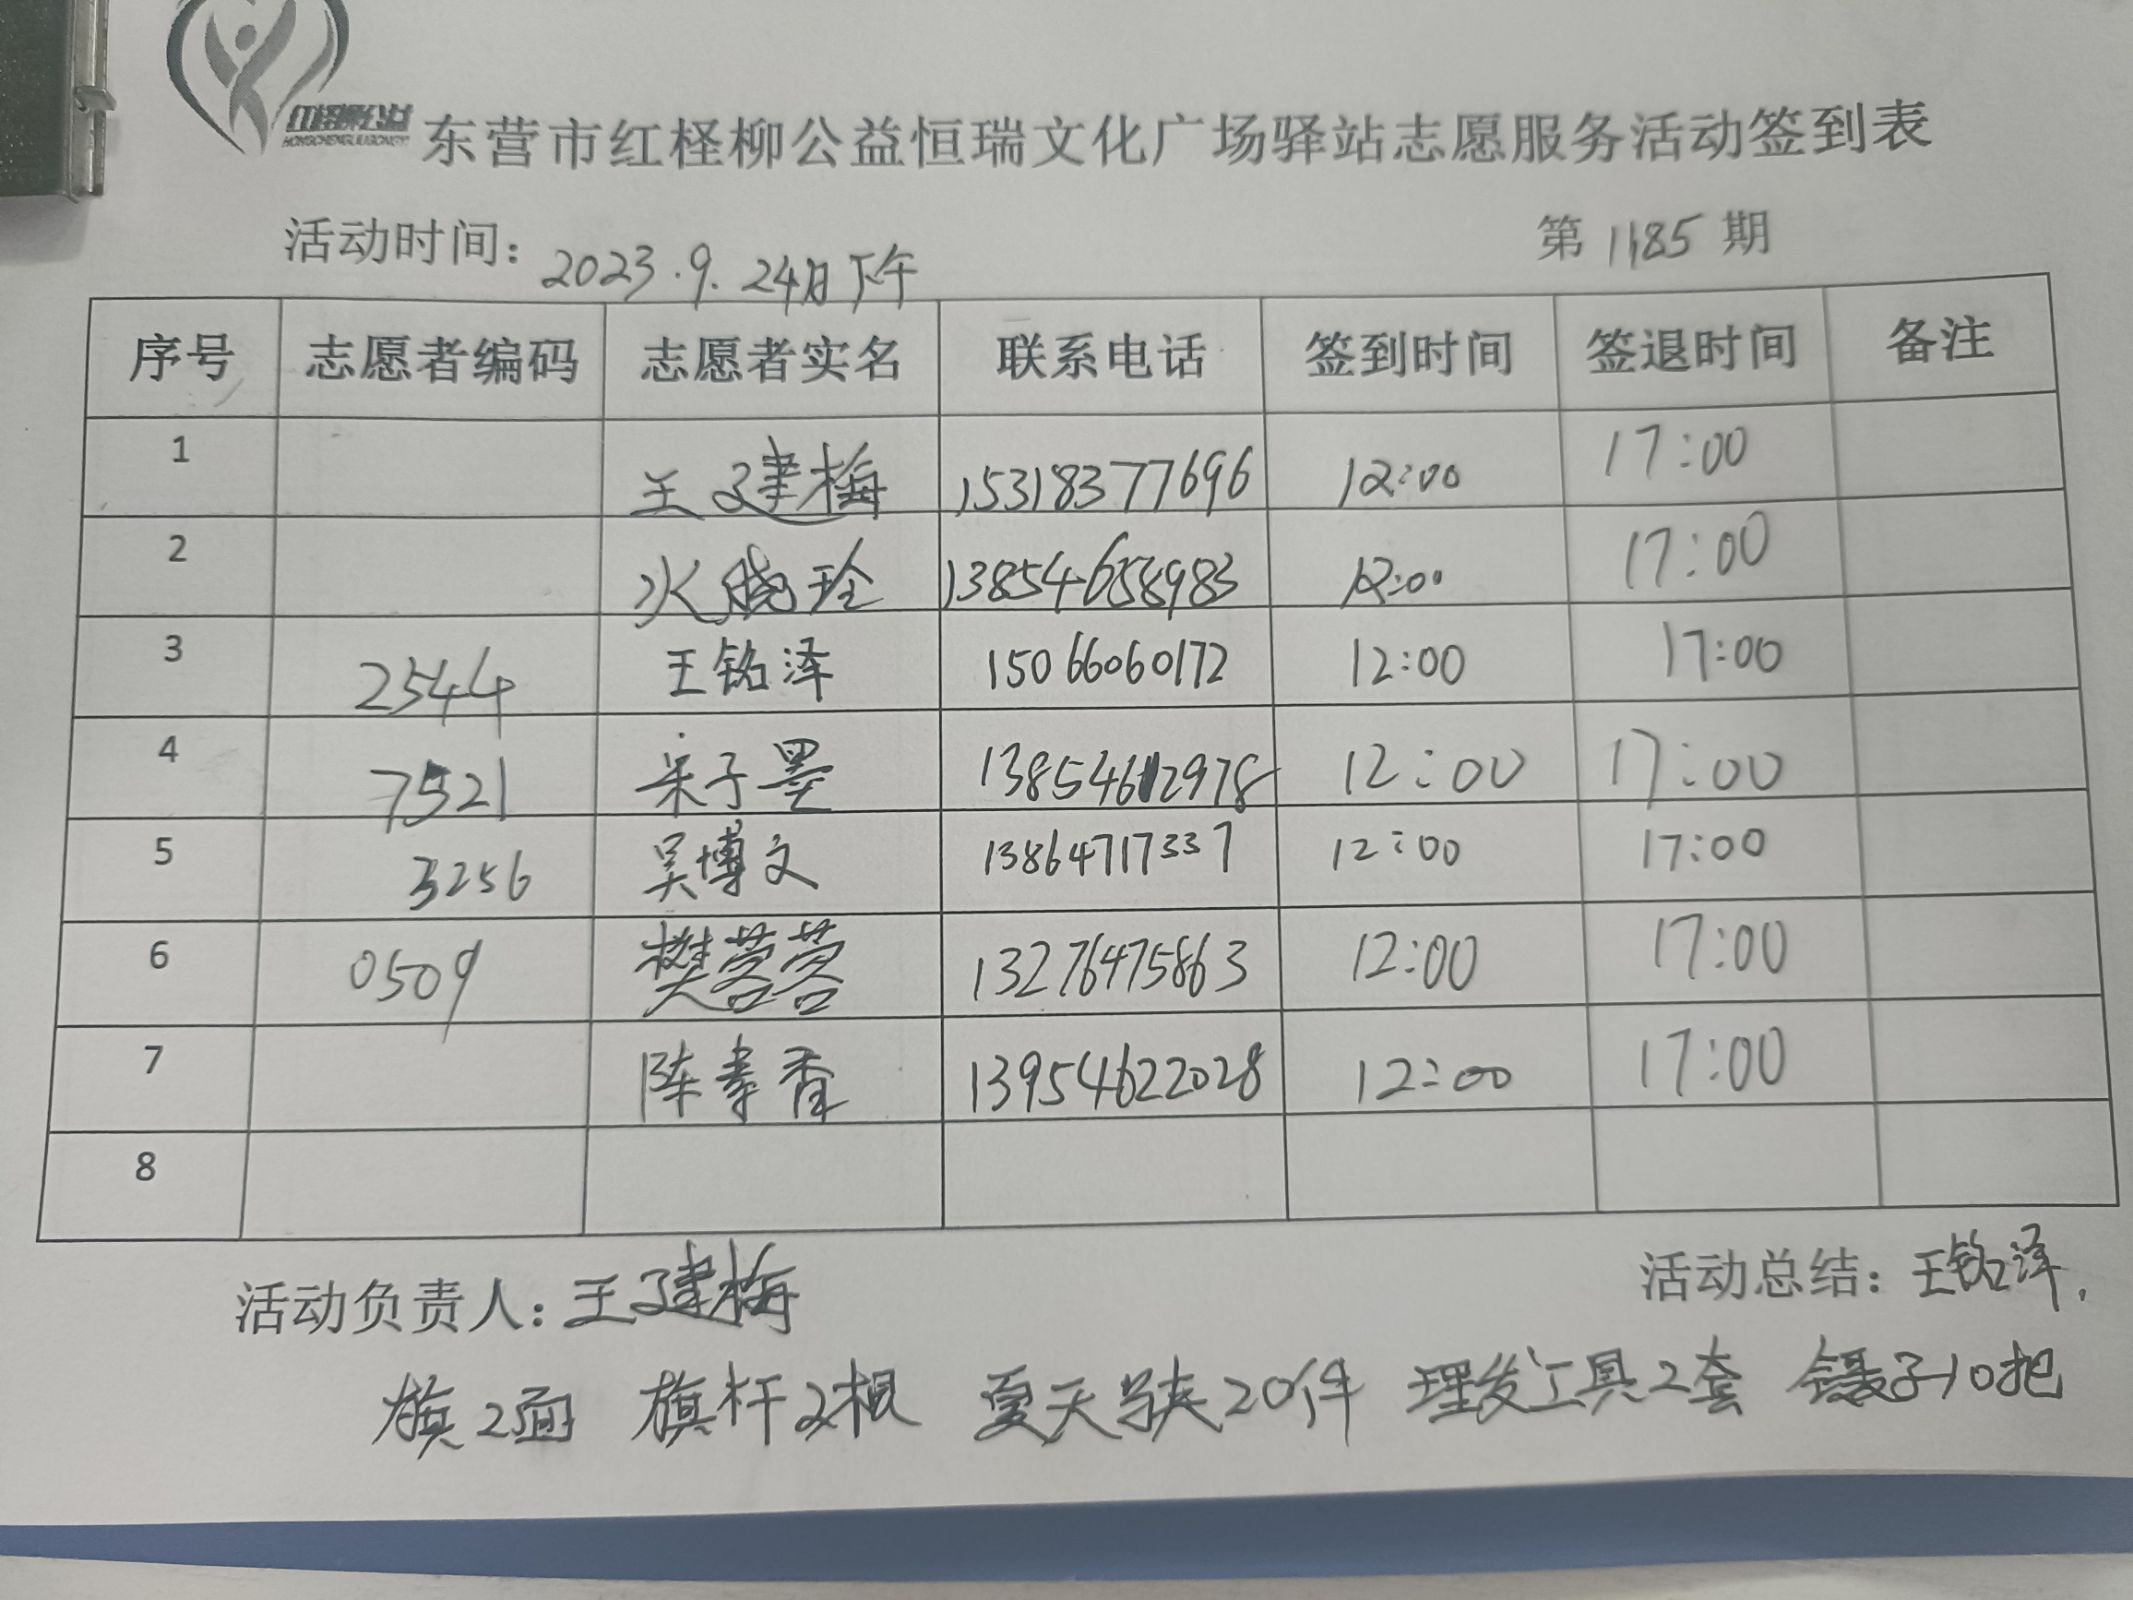 红柽柳公益
东营市红柽柳公益恒瑞文化广场驿站志愿服务活动签到表
活动时间：2023.9.24日下午 第1185期
序号 志愿者编码 志愿者实名 联系电话 签到时间 签退时间 备注
1 王建梅 15318377696 12:00 17:00
2 水晓玲 13854658983 12:00 17:00
3 2544 王铭泽 15066060172 12:00 17:00
4 7521 宋子墨 13854612978 12:00 17:00
5 3256 吴博文 13864717337 12:00 17:00
6 0509 樊蓉蓉 13276475863 12:00 17:00
7 陈素香 13954622028 12:00 17:00
8
活动负责人：王建梅 活动总结：王铭泽.
旗2面 旗杆2根 夏天马夹20件 理发工具2套 镊子10把